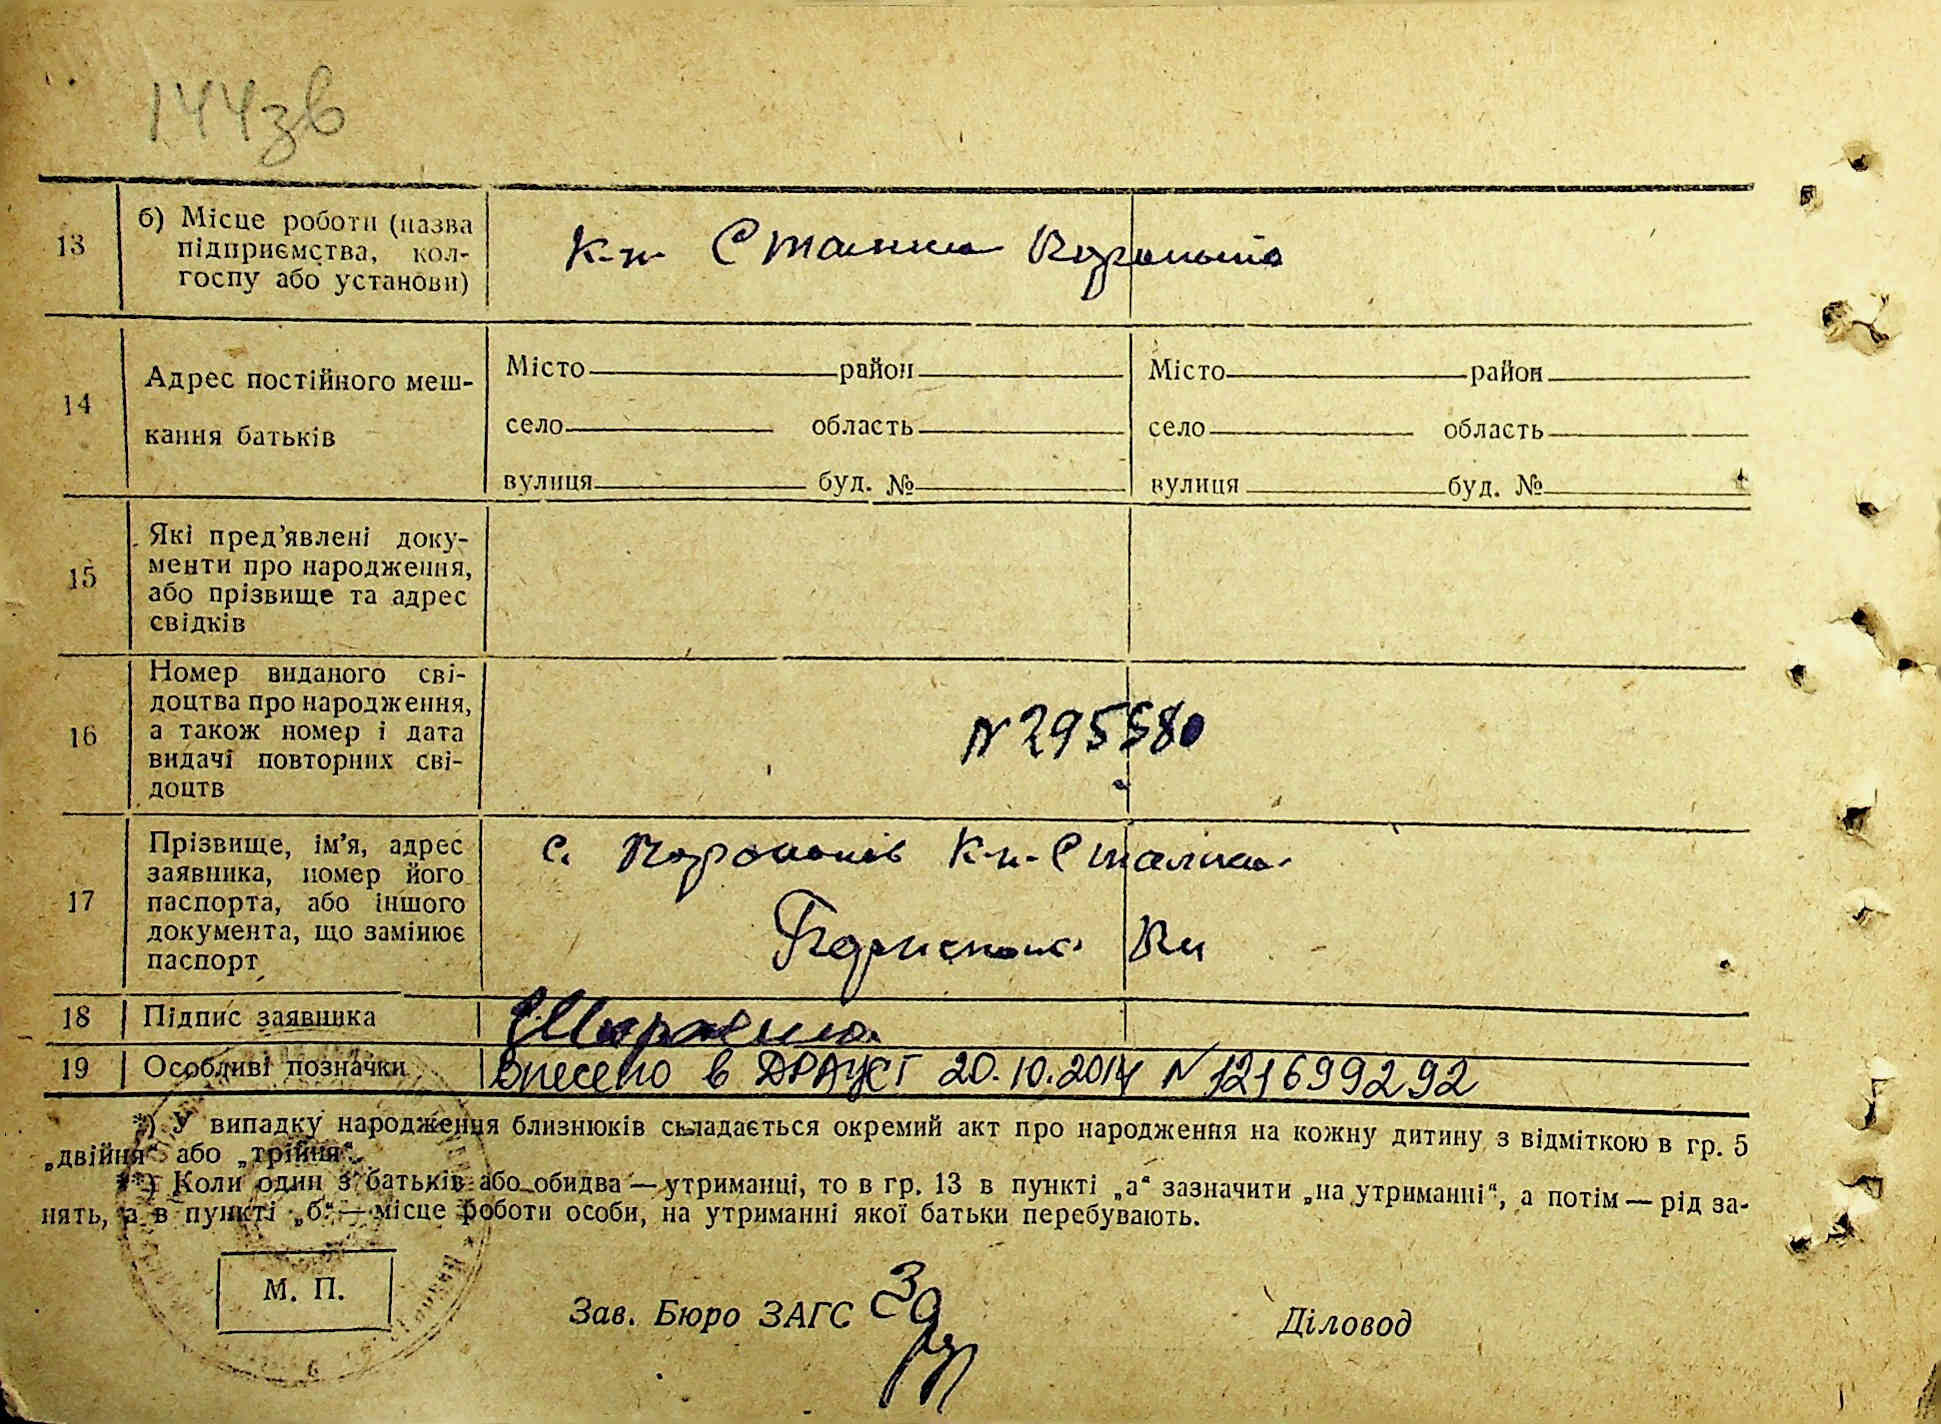 144зв
13
б) Місце роботи (назва
підприємства, кол-
госпу або установи)
К-п
14
Адрес постійного меш-
кання батьків
Місто район Місто район
село область село область
вулиця буд. № вулиця буд. №
15
Які пред’явлені доку-
менти про народження,
або прізвище та адрес
свідків
16
Номер виданого сві-
доцтва про народження,
а також номер і дата
видачі повторних сві-
доцтв
N 295580
17
Прізвище, ім’я, адрес
заявника, номер його
паспорта, або іншого
документа, що замінює
паспорт
с. К-п Сталіна
18 Підпис заявника
19 Особливі позначки Внесено в ДРАЦСГ 20.10.2014 N 121699292
*) У випадку народження близнюків складається окремий акт про народження на кожну дитину з відміткою в гр. 5
„двійня“ або „трійня“.
**) Коли один з батьків або обидва — утриманці, то в гр. 13 в пункті „а“ зазначити „на утриманні“, а потім — рід за-
нять, а в пункті „б“ — місце роботи особи, на утриманні якої батьки перебувають.
М. П.
Зав. Бюро ЗАГС
Діловод